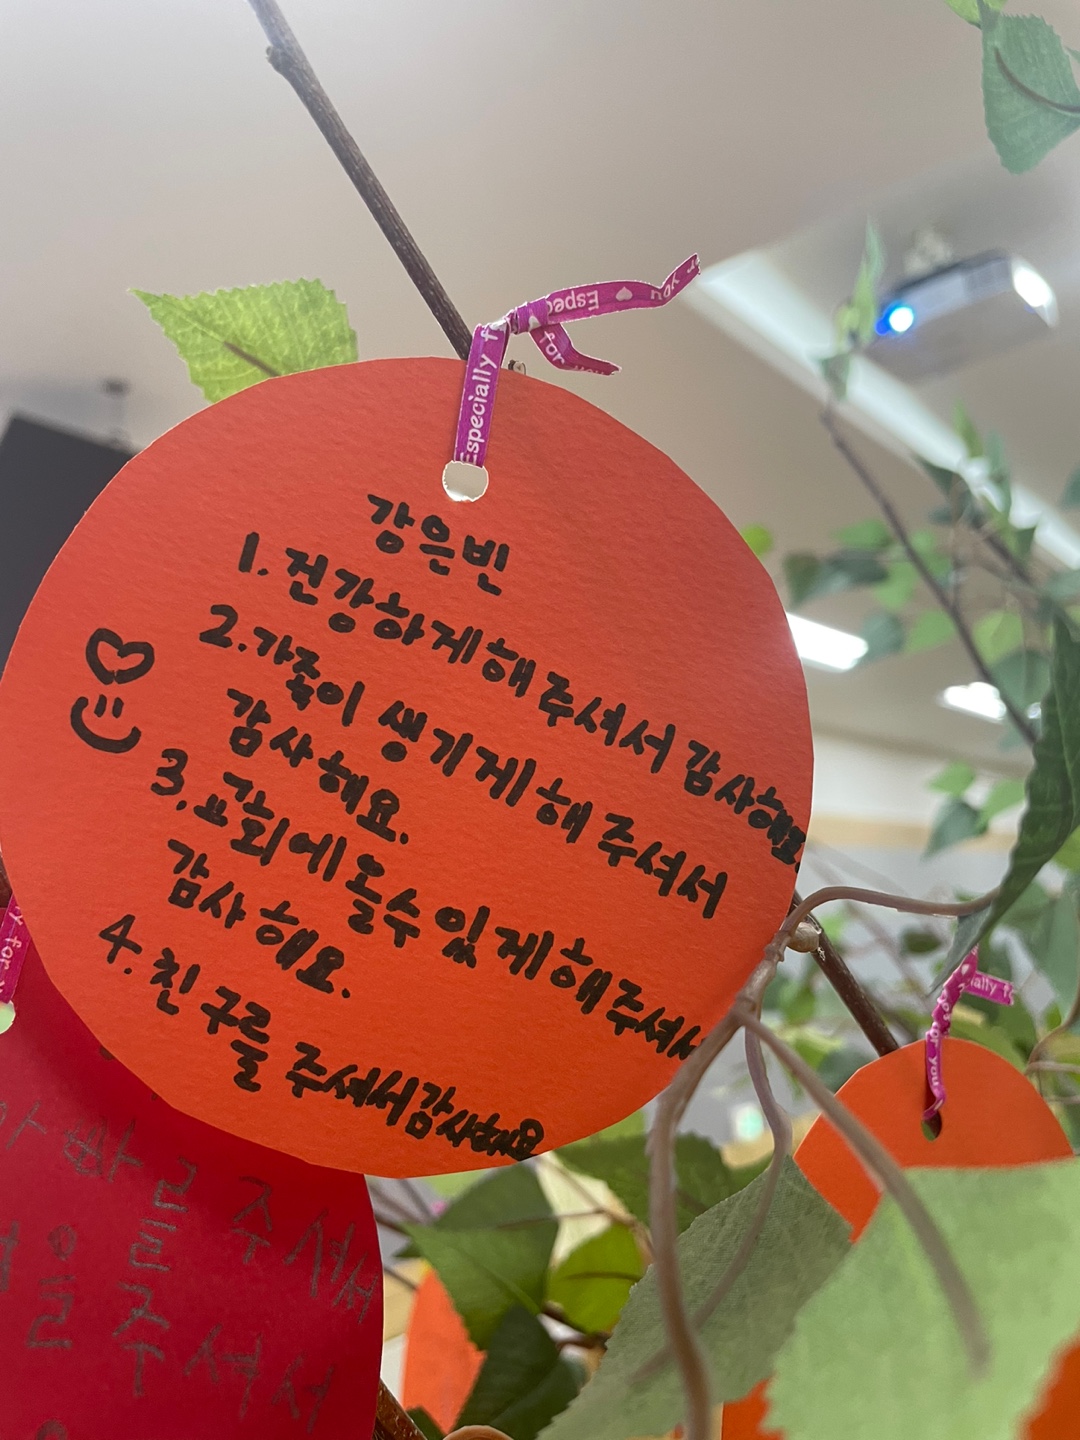 Especially f
Espec
you
for you
강은빈
1. 건강하게 해 주셔서 감사해요.
2. 가족이 생기게 해 주셔서
감사해요.
3. 교회에 올수 있게 해주셔서
감사해요.
4. 친구를 주셔서 감사해요
y for y
ially f
for you
아빠를 주셔서
을 주셔서